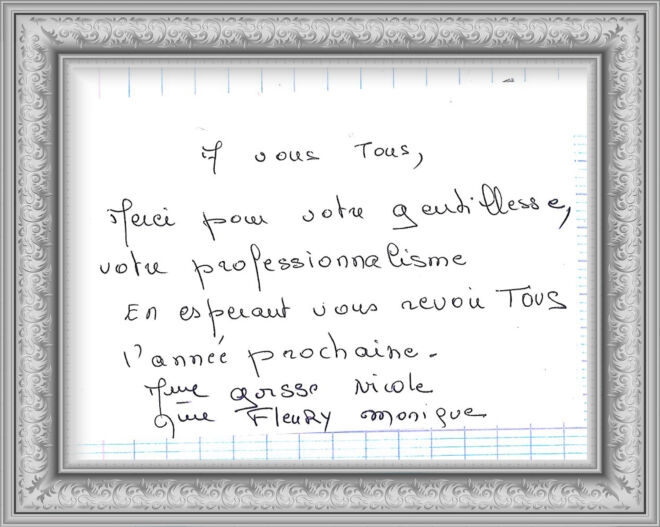 A vous Tous,
Merci pour votre gentillesse,
votre professionnalisme
En esperant vous revoir TOUS
l'année prochaine.
Mme gorsse Nicole
Mme FleuRy monique